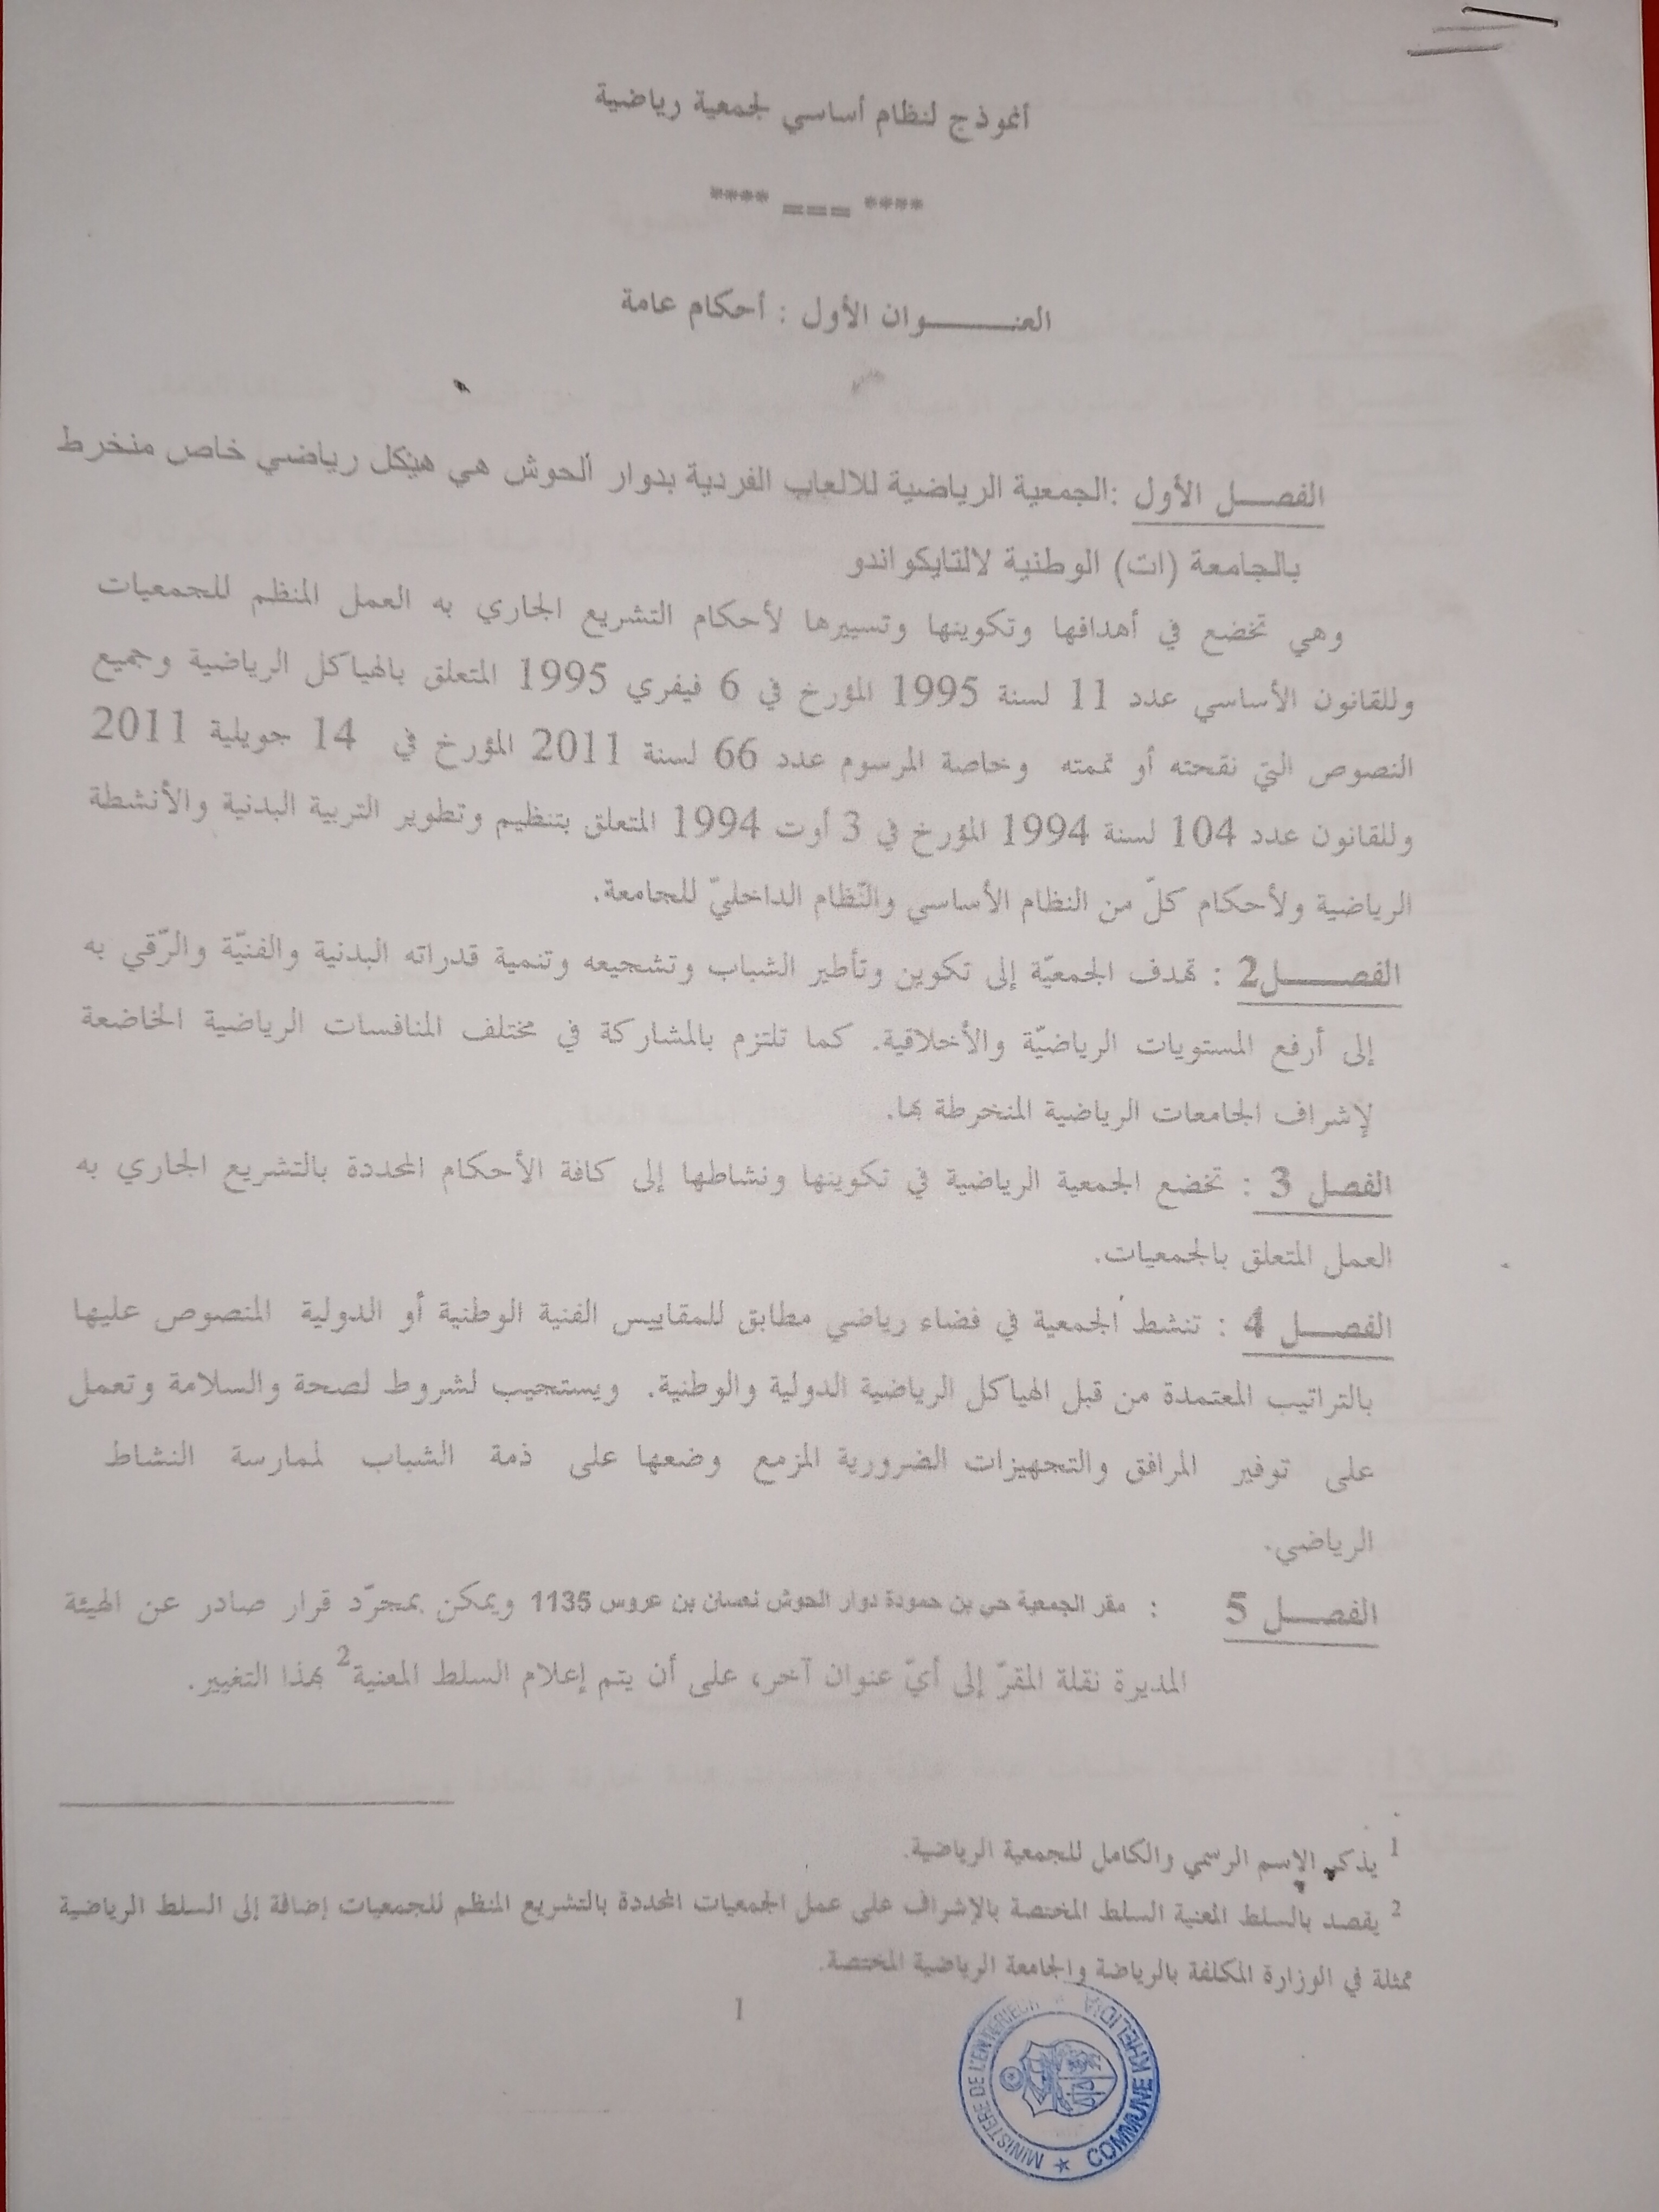 أنموذج لنظام أساسي لجمعية رياضية
**** === ****
العنـــــــوان الأول : أحكام عامة
الفصـــل الأول :الجمعية الرياضية للالعاب الفردية بدوار الحوش هي هيكل رياضي خاص منخرط
بالجامعة (ات) الوطنية لالتايكواندو
وهي تخضع في أهدافها وتكوينها وتسييرها لأحكام التشريع الجاري به العمل المنظم للجمعيات
وللقانون الأساسي عدد 11 لسنة 1995 المؤرخ في 6 فيفري 1995 المتعلق بالهياكل الرياضية وجميع
النصوص التي نقحته أو تممته وخاصة المرسوم عدد 66 لسنة 2011 المؤرخ في 14 جويلية 2011
وللقانون عدد 104 لسنة 1994 المؤرخ في 3 أوت 1994 المتعلق بتنظيم وتطوير التربية البدنية والأنشطة
الرياضية ولأحكام كلّ من النظام الأساسي والنّظام الداخليّ للجامعة.
الفصـــــل2 : تهدف الجمعيّة إلى تكوين وتأطير الشباب وتشجيعه وتنمية قدراته البدنية والفنيّة والرّقي به
إلى أرفع المستويات الرياضيّة والأخلاقية. كما تلتزم بالمشاركة في مختلف المنافسات الرياضية الخاضعة
لإشراف الجامعات الرياضية المنخرطة بها.
الفصل 3 : تخضع الجمعية الرياضية في تكوينها ونشاطها إلى كافة الأحكام المحددة بالتشريع الجاري به
العمل المتعلق بالجمعيات.
الفصـــل 4 : تنشط الجمعية في فضاء رياضي مطابق للمقاييس الفنية الوطنية أو الدولية المنصوص عليها
بالتراتيب المعتمدة من قبل الهياكل الرياضية الدولية والوطنية. ويستجيب لشروط لصحة والسلامة وتعمل
على توفير المرافق والتجهيزات الضرورية المزمع وضعها على ذمة الشباب لممارسة النشاط
الرياضي.
الفصـــل 5 : مقر الجمعية حي بن حمودة دوار الحوش نعسان بن عروس 1135 ويمكن بمجرّد قرار صادر عن الهيئة
المديرة نقلة المقرّ إلى أيّ عنوان آخر، على أن يتم إعلام السلط المعنية2 بهذا التغيير.
1 يذكر الإسم الرسمي والكامل للجمعية الرياضية.
2 يقصد بالسلط المعنية السلط المختصة بالإشراف على عمل الجمعيات المحددة بالتشريع المنظم للجمعيات إضافة إلى السلط الرياضية
ممثلة في الوزارة المكلفة بالرياضة والجامعة الرياضية المختصة.
1
MINISTERE DE L'INTERIEUR
COMMUNE KHELIDIA